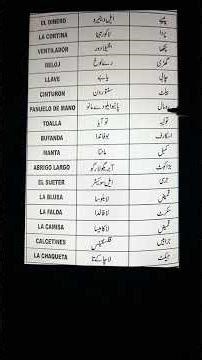 EL DINERO ایل دینیرو پیسے
LA CORTINA لا کورتینا پردا
VENTILADOR پنکھا
RELOJ رے لوخ گھڑی
LLAVE یابے چابی
CINTURON سنتورون بیلٹ
PANUELO DE MANO پانیوایلو دے مانو رومال
TOALLA توآیا تولیہ
BUFANDA بوفاندا اسکارف
MANTA مانتا کمبل
ABRIGO LARGO آبریگو لارگو بڑا کوٹ
EL SUETER ایل سوئیٹر جرسی
LA BLUSA لا بلوسا قمیض
LA FALDA لا فالدا سکرٹ
LA CAMISA لا کامیسا قمیض
CALCETINES جرابیں
LA CHAQUETA لا چاکےتا جیکٹ